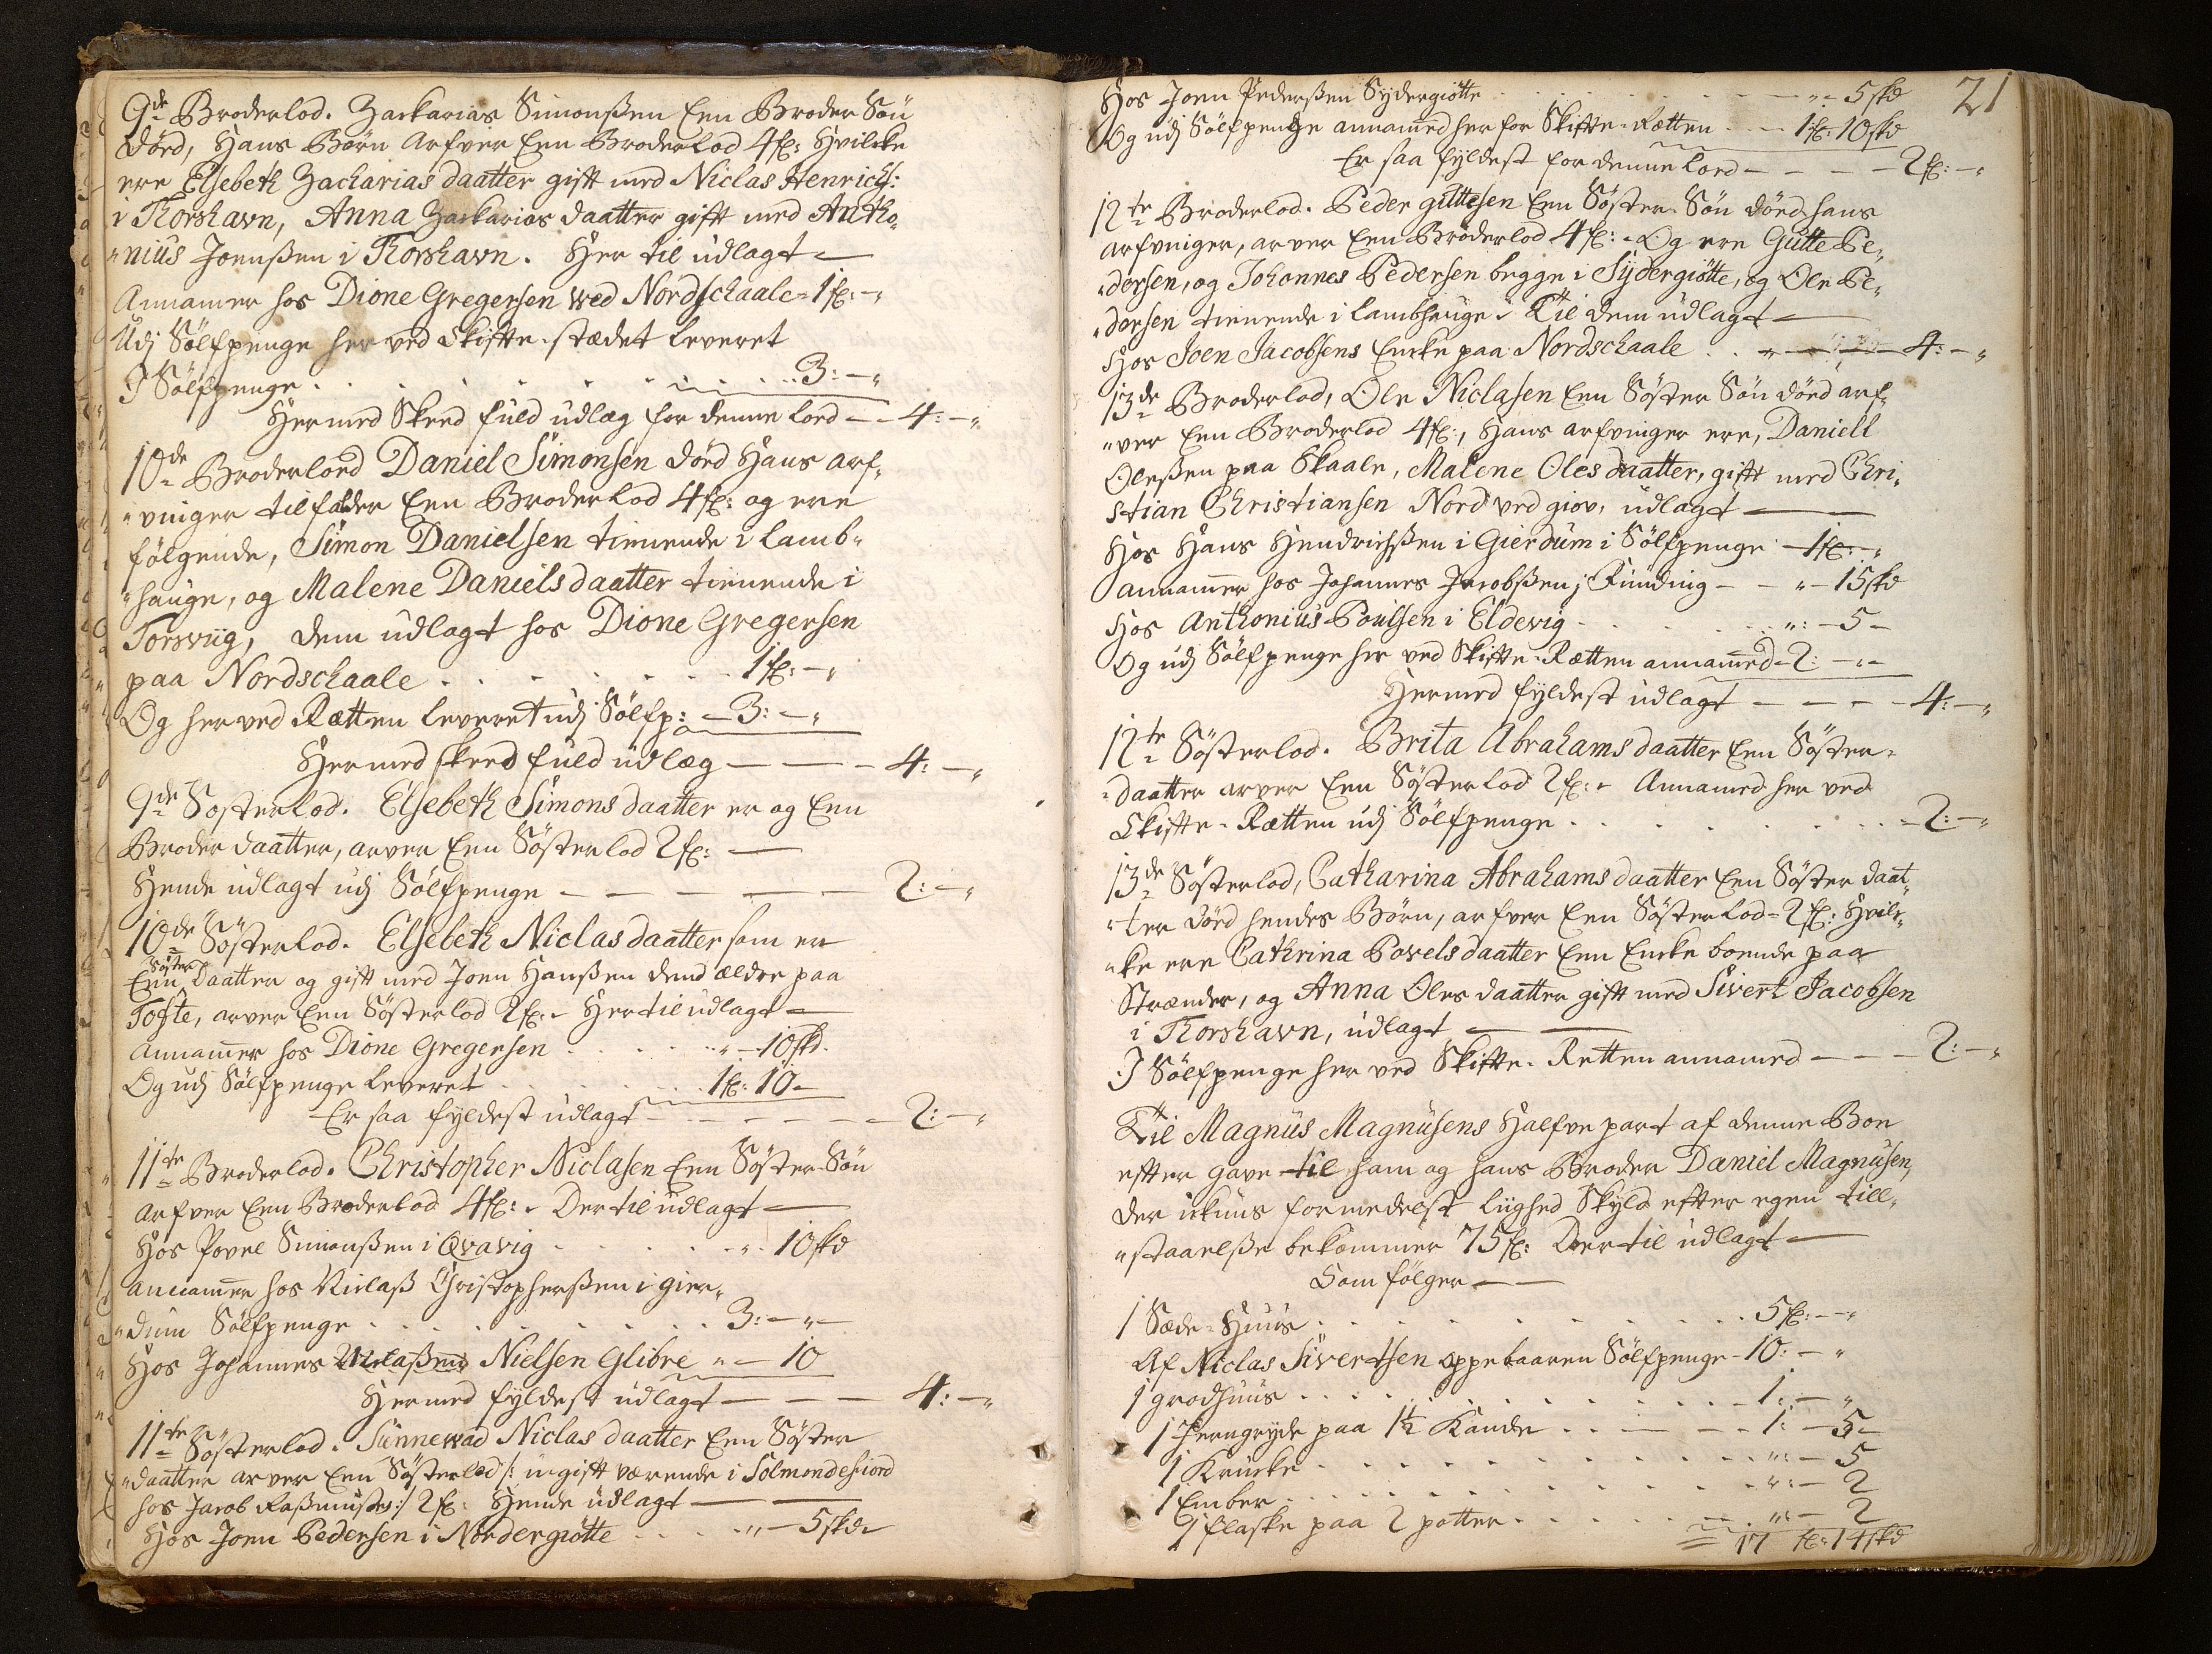 9de Broderlod. Zackarias Simonßen Een Broder Søn
Dörd, Hans Börn Arfver Een Broderlod 4f: Hvilcke
ere Elsebeth Zacharias daatter gift med Niclas Henrichs:
i Thorshavn, Anna Zackarias daatter gift med Antho-
"nius Joenßen i Thorshavn. Her til udlagt —
Annamer hos Dione Gregersen wed Nordschaale - 1f: - "
Udj Sölfpenge her ved Skifte-stædet leveret
I Sölfpenge . . . . . . . . 3: - "
Hermed Skeed fuld udlæg for denne lord — 4: - "
10de Broderlord Daniel Simonsen dörd Hans arf-
"vinger tilfalder Een Broderlod 4f: og ere
fölgende, Simon Danielsen tienende i Lamb-
"hauge, og Malene Daniels daatter tienende i
Torsviig, dem udlagt hos Dione Gregersen
paa Nordschaale . . . . . . . 1f: - "
Og her ved Rætten leveret udj Sölfp: - 3: - "
Hermed skeed fuld udlæg — — — 4: - "
9de Sosterlod. Elsebeth Simons daatter er og Een
Broder daatter, arver Een Sösterlod 2f: —
Hende udlagt udj Sölfpenge — — — — — 2: - "
10de Sösterlod. Elsebeth Niclas daatter som er
Een Söster Daatter og gift med Joen Hanßen dend ældre paa
Tofte, arver Een Sösterlod 2f: - Her til udlagt —
Annamer hos Dione Gregersen . . . . . " - 10skd.
Og udj Sölfpenge leveret . . . . . . . 1f: 10 -
Er saa fyldest udlagt — — — — — 2: - "
11te Broderlod. Christopher Niclasen Een Söster-Sön
arfver Een Broderlod 4f: - Der til udlagt —
Hos Povel Simonßen i Qvavig . . . . . . " - 10skd
annamer hos Niclaß Christopherßen i gier-
"dum Sölfpenge . . . . . . . . 3: - " -
Hos Johannes Niclaßens Nielsen Glibre " - 10
Hermed fyldest udlagt — — — 4: - "
11te Sösterlod. Sünnewad Niclas daatter Een Söster
"daatter arver Een Sösterlod /: ugift værende i Solmondefiord
hos Jacob Raßmußes :/ 2f: Hende udlagt — —
Hos Joen Pedersen i Nordergiøtte . . . . " - 5skd -
21
Hos Joen Pederßen Sydergiötte . . . . . . " - 5skd
Og udj Sölfpenge annamed her for Skifte-Rætten — 1f: 10skd
Er saa fyldest for denne lord — — — — 2f: - "
12te Broderlod. Peder gittesen Een Söster-Sön dörd, hans
arfvinger, arver Een Broderlod 4f: - Og ere Gutte Pe-
"dersen, og Johannes Pedersen begge i Sydergiötte, og Ole Pe-
"dersen tienende i Lambhauge - Til dem udlagt —
Hos Joen Jacobsens Encke paa Nordschaale . . " — — 4: - "
13de Broderlod, Ole Niclasen Een Söster Sön dörd arf-
"ver Een Broderlod 4f:, Hans arfvinger ere, Daniell
Oleßen paa Skaale, Malene Oles daatter, gift med Chri-
stian Christiansen Nord ved giov, udlagt — —
Hos Hans Hendrichßen i Gierdum i Sölfpenge - 1f: - "
annamer hos Johannes Jacobßen j Funding — " - 15skd
Hos Anthonius Poulsen i Eldevig . . . . . . ": - 5 -
Og udj Sölfpenge her ved Skifte-Rætten annamed - 2: - " -
Hermed fyldest udlagt — — — — 4: - "
12te Sösterlod. Brita Abrahams daatter Een Söster-
-daatter arver Een Sösterlod 2f: - Annamed her ved
Skifte-Rætten udj Sölfpenge . . . . . . . . . - 2: - "
13de Sösterlod, Catharina Abrahams daatter Een Söster daat-
"ter dörd hendes Börn, arfver Een Sösterlod - 2f: Hvilc-
"ke ere Cathrina Povels daatter Een Encke boende paa
Strænder, og Anna Oles daatter gift med Sivert Jacobsen
i Thorshavn, udlagt — —
I Sölfpenge her ved Skifte-Retten annamed — — — 2: - "
Til Magnus Magnusens Halfve part af denne Boe
efter gave til ham og hans Broder Daniel Magnusen,
der ickuns formedelst liighed Skyld efter egen till-
"staaelße bekommer 75f: Der til udlagt —
Som fölger — —
1 Sæde-Huus . . . . . . . . . . . . 5f: - "
Af Niclas Sivertsen oppebaaren Sölfpenge - 10: - "
1 grodhuus . . . . . . . . . . . . 1: - "
1 Jerngryde paa 1½ Kande . . — — — 1: - 5 -
1 Krucke . . . . . . . . . . . . ": - 5
1 Ember . . . . . . . . . . . . ": - 2
1 flaske paa 2 potter . . . . . . . . ": - 2
17 f: 14skd